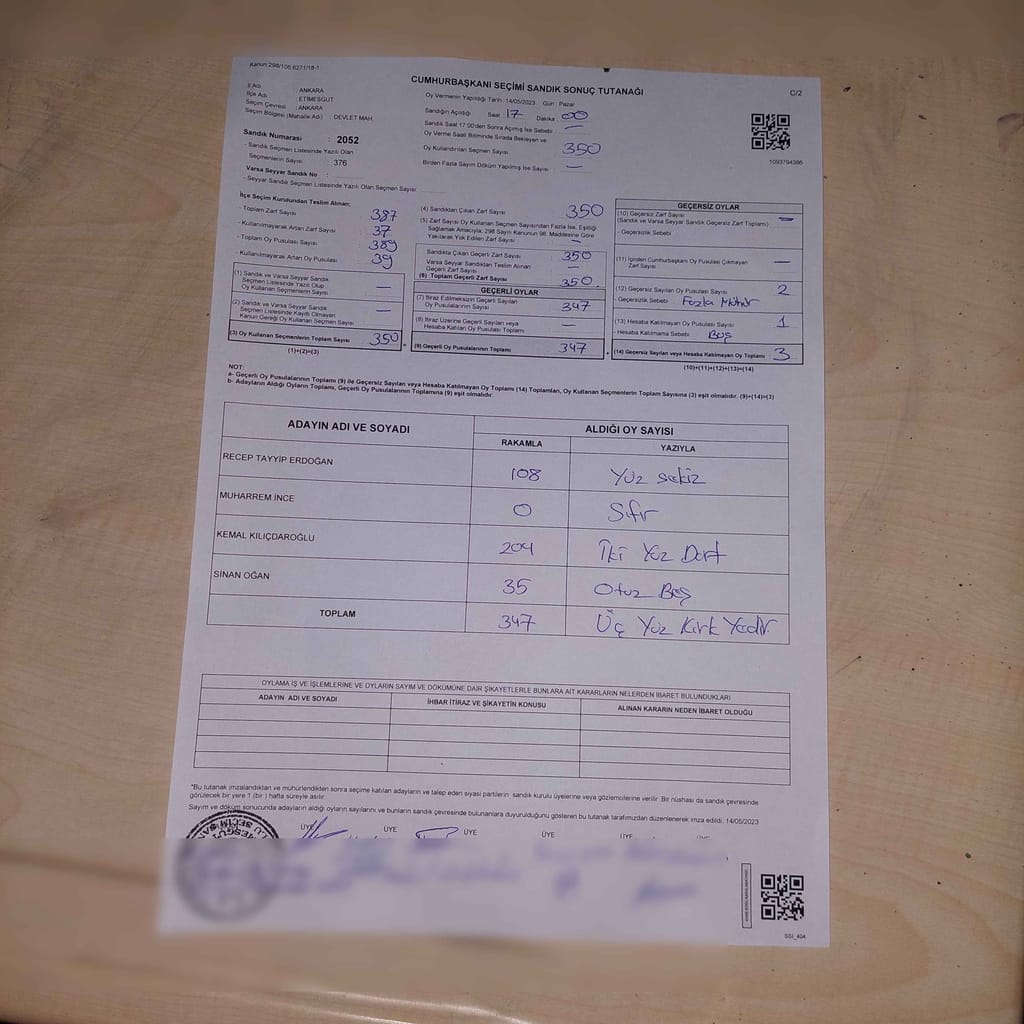 Kanun:298/105;6271/18-1
CUMHURBAŞKANI SEÇİMİ SANDIK SONUÇ TUTANAĞI
C/2
İl Adı : ANKARA
İlçe Adı : ETİMESGUT
Seçim Çevresi : ANKARA
Seçim Bölgesi (Mahalle Adı) : DEVLET MAH.
Sandık Numarası : 2052
- Sandık Seçmen Listesinde Yazılı Olan
Seçmenlerin Sayısı : 376
Varsa Seyyar Sandık No :
- Seyyar Sandık Seçmen Listesinde Yazılı Olan Seçmen Sayısı:
Oy Vermenin Yapıldığı Tarih : 14/05/2023 Gün : Pazar
Sandığın Açıldığı Saat : 17 Dakika : 00
Sandık Saat 17:00'den Sonra Açılmış İse Sebebi : —
Oy Verme Saati Bitiminde Sırada Bekleyen ve
Oy Kullandırılan Seçmen Sayısı : 350
Birden Fazla Sayım Döküm Yapılmış İse Sayısı : —
1093794386
İlçe Seçim Kurulundan Teslim Alınan;
- Toplam Zarf Sayısı : 387
- Kullanılmayarak Artan Zarf Sayısı : 37
- Toplam Oy Pusulası Sayısı : 389
- Kullanılmayarak Artan Oy Pusulası : 39
(1) Sandık ve Varsa Seyyar Sandık
Seçmen Listesinde Yazılı Olup
Oy Kullanan Seçmenlerin Sayısı : —
(2) Sandık ve Varsa Seyyar Sandık
Seçmen Listesinde Kayıtlı Olmayan
Kanun Gereği Oy Kullanan Seçmen Sayısı : —
(3) Oy Kullanan Seçmenlerin Toplam Sayısı : 350
(1)+(2)=(3)
(4) Sandıktan Çıkan Zarf Sayısı : 350
(5) Zarf Sayısı Oy Kullanan Seçmen Sayısından Fazla İse, Eşitliği
Sağlamak Amacıyla; 298 Sayılı Kanunun 98. Maddesine Göre
Yakılarak Yok Edilen Zarf Sayısı : —
Sandıkta Çıkan Geçerli Zarf Sayısı : 350
Varsa Seyyar Sandıktan Teslim Alınan
Geçerli Zarf Sayısı : —
(6) Toplam Geçerli Zarf Sayısı : 350
GEÇERLİ OYLAR
(7) İtiraz Edilmeksizin Geçerli Sayılan
Oy Pusulalarının Sayısı : 347
(8) İtiraz Üzerine Geçerli Sayılan veya
Hesaba Katılan Oy Pusulası Toplamı : —
(9) Geçerli Oy Pusulalarının Toplamı : 347
GEÇERSİZ OYLAR
(10) Geçersiz Zarf Sayısı
(Sandık ve Varsa Seyyar Sandık Geçersiz Zarf Toplamı) : —
- Geçersizlik Sebebi :
(11) İçinden Cumhurbaşkanı Oy Pusulası Çıkmayan
Zarf Sayısı : —
(12) Geçersiz Sayılan Oy Pusulası Sayısı : 2
- Geçersizlik Sebebi : Fazla Mühür
(13) Hesaba Katılmayan Oy Pusulası Sayısı : 1
- Hesaba Katılmama Sebebi : Boş
(14) Geçersiz Sayılan veya Hesaba Katılmayan Oy Toplamı : 3
(10)+(11)+(12)+(13)=(14)
NOT:
a- Geçerli Oy Pusulalarının Toplamı (9) ile Geçersiz Sayılan veya Hesaba Katılmayan Oy Toplamı (14) Toplamları, Oy Kullanan Seçmenlerin Toplam Sayısına (3) eşit olmalıdır. (9)+(14)=(3)
b- Adayların Aldığı Oyların Toplamı, Geçerli Oy Pusulalarının Toplamına (9) eşit olmalıdır.
ADAYIN ADI VE SOYADI
ALDIĞI OY SAYISI
RAKAMLA YAZIYLA
RECEP TAYYİP ERDOĞAN 108 Yüz sekiz
MUHARREM İNCE 0 Sıfır
KEMAL KILIÇDAROĞLU 204 İki Yüz Dört
SİNAN OĞAN 35 Otuz Beş
TOPLAM 347 Üç Yüz Kırk Yedir
OYLAMA İŞ VE İŞLEMLERİNE VE OYLARIN SAYIM VE DÖKÜMÜNE DAİR ŞİKAYETLERLE BUNLARA AİT KARARLARIN NELERDEN İBARET BULUNDUKLARI
ADAYIN ADI VE SOYADI İHBAR İTİRAZ VE ŞİKAYETİN KONUSU ALINAN KARARIN NEDEN İBARET OLDUĞU
*Bu tutanak imzalandıktan ve mühürlendikten sonra seçime katılan adayların ve talep eden siyasi partilerin sandık kurulu üyelerine veya gözlemcilerine verilir. Bir nüshası da sandık çevresinde
görülecek bir yere 1 (bir) hafta süreyle asılır.
Sayım ve döküm sonucunda adayların aldığı oyların sayılarını ve bunların sandık çevresinde bulunanlara duyurulduğunu gösteren bu tutanak tarafımızdan düzenlenerek imza edildi. 14/05/2023
ÜYE ÜYE ÜYE ÜYE ÜYE ÜYE
SSI_404